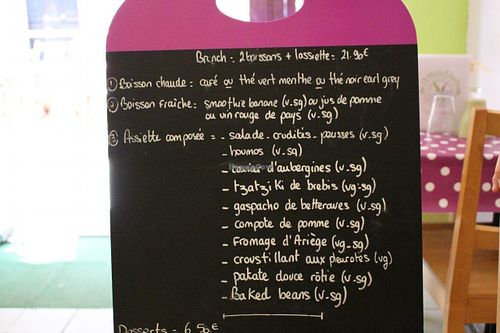 Brunch = 2 boissons + 1 assiette = 21.90€
① Boisson chaude = café ou thé vert menthe ou thé noir earl grey
② Boisson fraîche = smoothie banane (v-sg) ou jus de pomme
ou vin rouge de pays (v-sg)
③ Assiette composée = - salade - crudités - pousses (v-sg)
- houmos (v-sg)
- caviar d'aubergines (v-sg)
- tzatziki de brebis (vg-sg)
- gaspacho de betteraves (v-sg)
- compote de pomme (v-sg)
- fromage d'Ariège (vg-sg)
- croustillant aux pleurotes (vg)
- patate douce rôtie (v-sg)
- Baked beans (v-sg)
Desserts = 6.50€